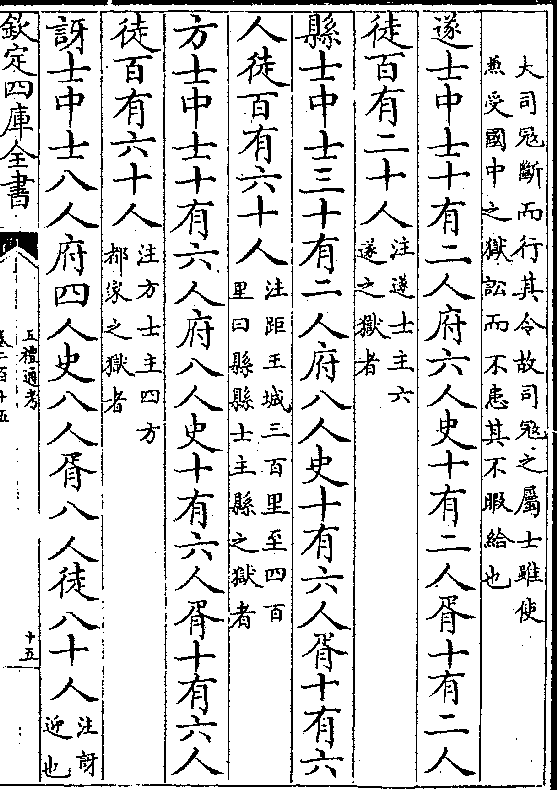 大司冦斷而行其令故司冦之屬士雖使
兼受國中之獄訟而不患其不暇給也
遂士中士十有二人府六人史十有二人胥十有二人
徒百有二十人注遂士主六
遂之獄者
縣士中士三十有二人府八人史十有六人胥十有六
人徒百有六十人注距王城三百里至四百
里曰縣縣士主縣之獄者
方士中士十有六人府八人史十有六人胥十有六人
徒百有六十人注方士主四方
都家之獄者
訝士中士八人府四人史八人胥八人徒八十人注訝
迎也
欽定四庫全書
五禮通考
卷二百十五
十五